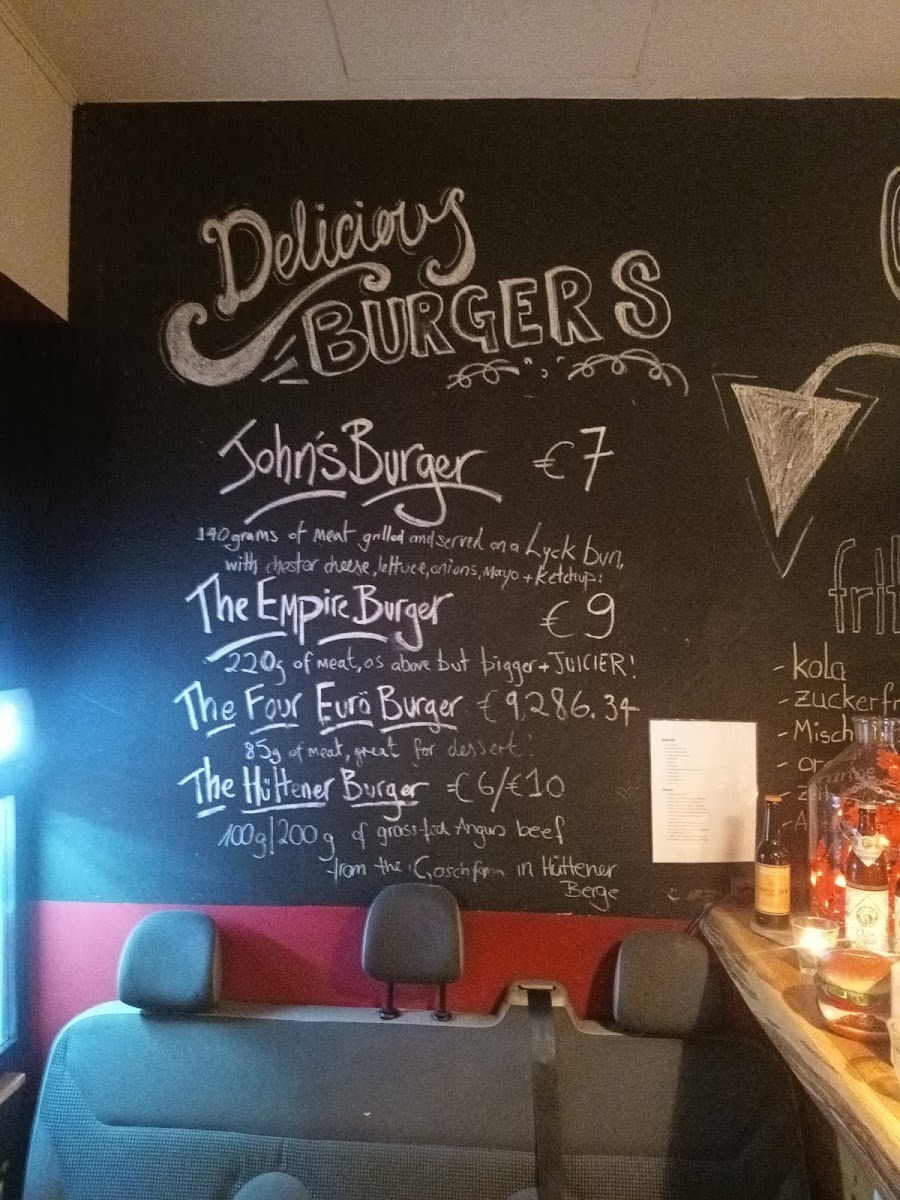 Delicious
BURGERS
John's Burger €7
140grams of meat grilled and served on a Lyck bun,
with chester cheese, lettuce, onions, Mayo + Ketchup.
The Empire Burger €9
220g of meat, as above but bigger + JUICIER!
The Four Euro Burger €9,286.34
85g of meat, great for dessert!
The Hüttener Burger €6/€10
100g/200g of grass-fed Angus beef
from the in Hüttener
Berge
- kola
- zuckerfr
- Misch